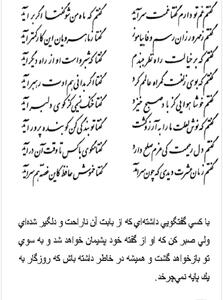 گفتم غم تو دارم گفتا غمت سر آید گفتم که ماه من شو گفتا اگر برآید
گفتم ز مهرورزان رسم وفا بیاموز گفتا ز ماهرویان این کار کمتر آید
گفتم که بر خیالت راه نظر ببندم گفتا که شبرو است او از راه دیگر آید
گفتم که بوی زلفت گمراه عالمم کرد گفتا اگر بدانی هم اوت رهبر آید
گفتم خوشا هوایی کز باد صبح خیزد گفتا خنک نسیمی کز کوی دلبر آید
گفتم که نوش لعلت ما را به آرزو کشت گفتا تو بندگی کن کو بنده پرور آید
گفتم دل رحیمت کی عزم صلح دارد گفتا مگوی با کس تا وقت آن درآید
گفتم زمان عشرت دیدی که چون سرآمد گفتا خموش حافظ کاین غصه هم سرآید
با کسي گفتگويي داشته‌اي که از بابت آن ناراحت و دلگير شده‌اي
ولي صبر کن که او از گفته خود پشيمان خواهد شد و به سوي
تو بازخواهد گشت و هميشه در خاطر داشته باش که روزگار به
يک پايه نمي‌چرخد.